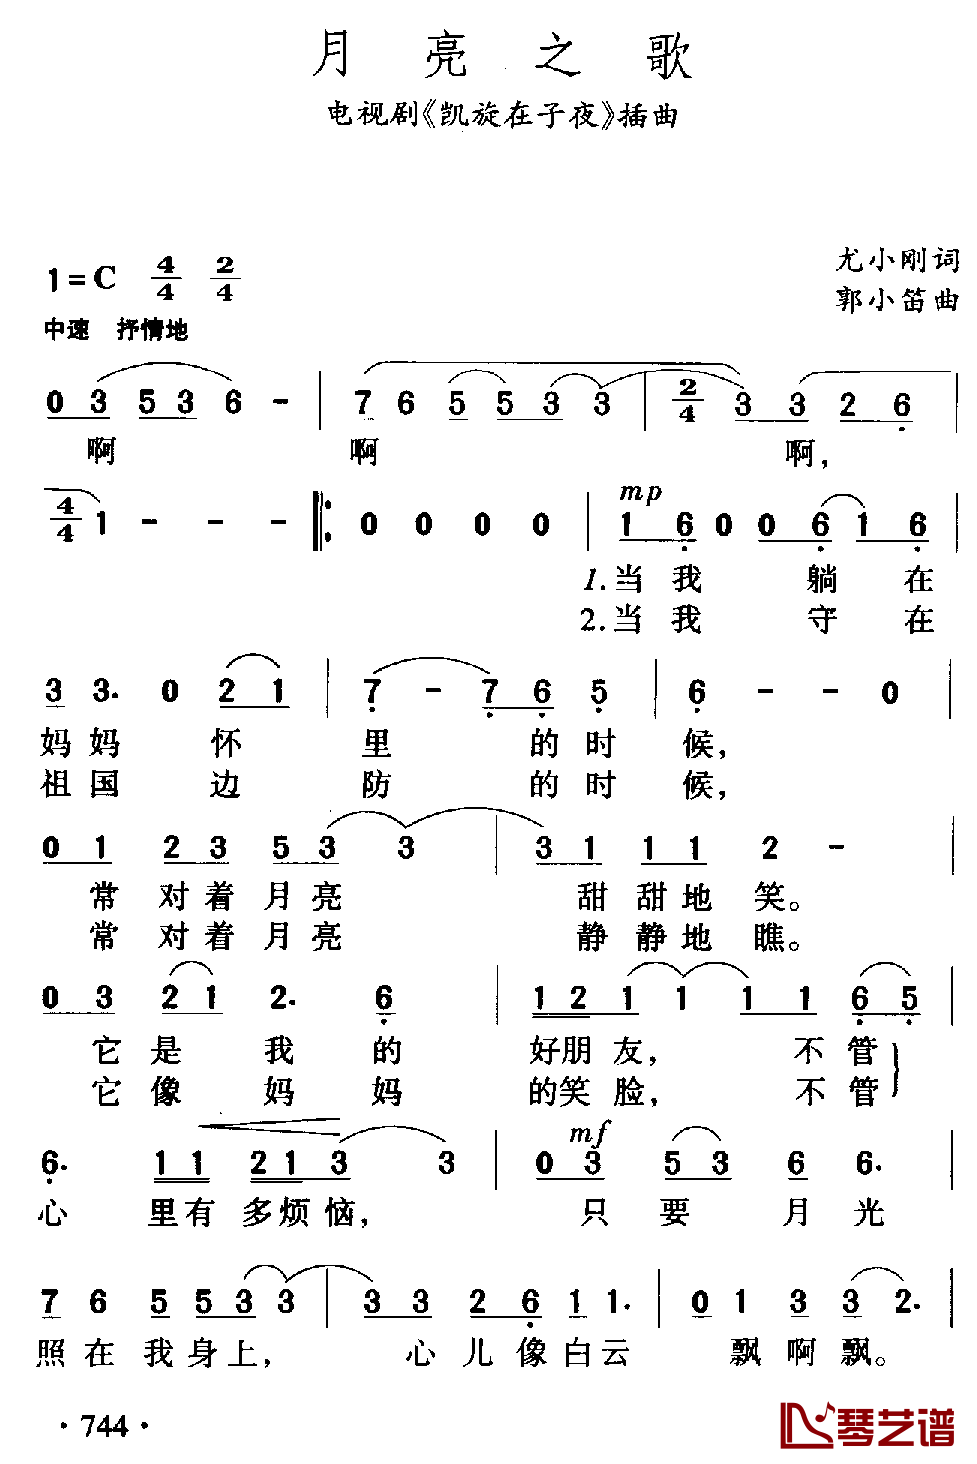 月亮之歌
电视剧《凯旋在子夜》插曲
尤小刚词
1=C 4/4 2/4
郭小笛曲
中速 抒情地
0 3 5 3 6 - | 7 6 5 5 3 3 | 2/4 3 3 2 6 |
啊 啊 啊,
4/4 1 - - - 0 0 0 0 | mp 1 6 0 0 6 1 6 |
1.当我 躺 在
2.当我 守 在
3 3. 0 2 1 | 7 - 7 6 5 | 6 - - 0 |
妈妈 怀 里 的时 候,
祖国 边 防 的时 候,
0 1 2 3 5 3 3 | 3 1 1 1 2 - |
常 对着月亮 甜 甜地 笑。
常 对着月亮 静 静地 瞧。
0 3 2 1 2. 6 | 1 2 1 1 1 1 6 5 |
它 是 我 的 好朋 友, 不 管
它 像 妈 妈 的笑 脸, 不 管
mf
6. 1 1 2 1 3 3 | 0 3 5 3 6 6. |
心 里有多烦恼, 只 要 月 光
7 6 5 5 3 3 | 3 3 2 6 1 1. | 0 1 3 3 2. |
照在我身上, 心儿像白云 飘啊飘。
· 744 ·
琴艺谱